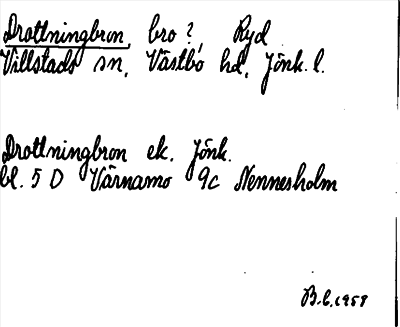 Drottningbron, bro? Ryd
Villstads sn, Västbo hd, Jönk. l.
Drottningbron ek. Jönk.
bl. 5 D Värnamo 9c Nennesholm
B.L. 1958